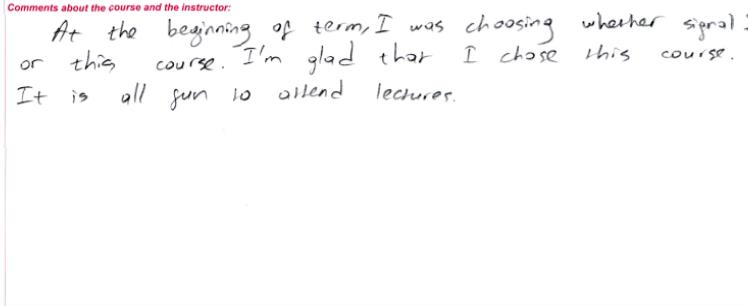 Comments about the course and the instructor:
At the beginning of term, I was choosing whether signal
or this course. I'm glad that I chose this course.
It is all fun to attend lectures.